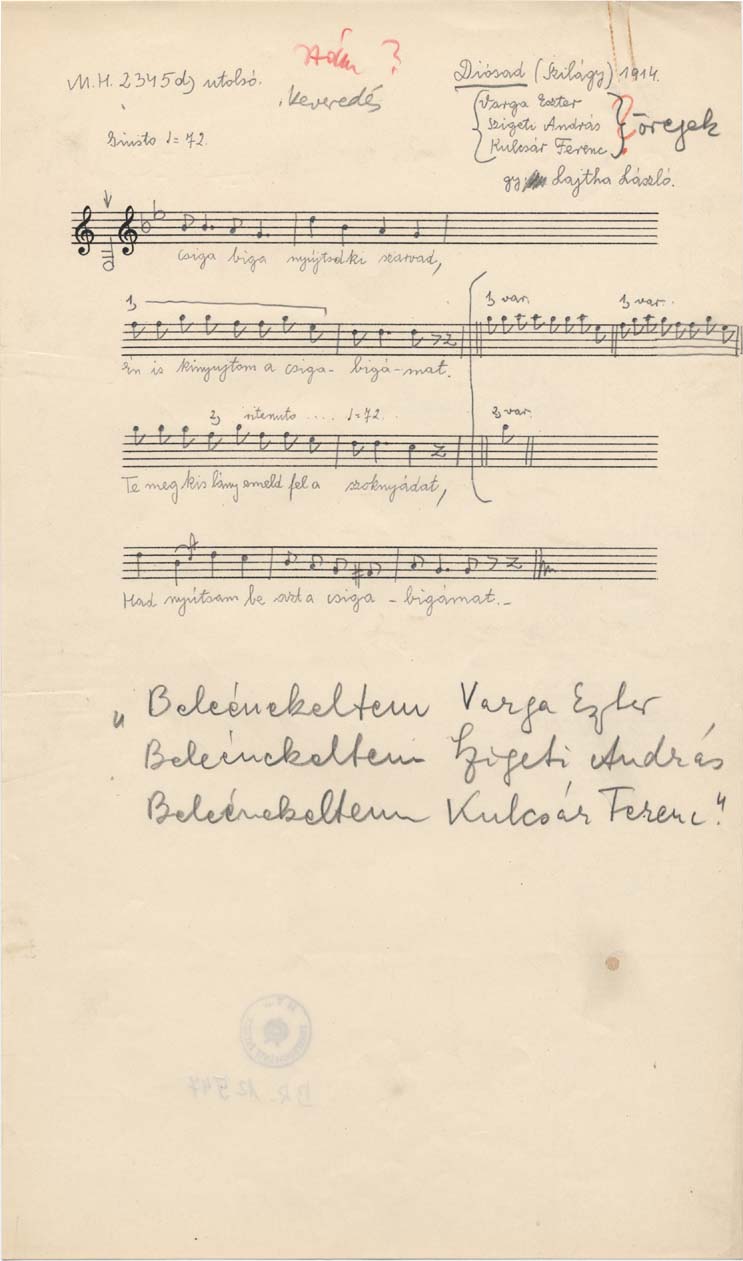 Ádám ?
M.H. 2345d) utolsó.
keveredés
Diósad (Szilágy) 1914.
Varga Eszter
Szigeti András
Kulcsár Ferenc
öregek
?
Giusto ♩=72.
gy. Lajtha László.
csiga biga nyújtsdki szarvad,
1, 1, var. 1, var.
Én is kinyujtom a csiga- bigá-mat.
2, ritenuto .... ♩=72. 2, var.
Te meg kis lány emeld fel a szoknyádat,
Had nyútsam be azt a csiga - bigámat.-
„Beleénekeltem Varga Eszter
Beleénekeltem Szigeti András
Beleénekeltem Kulcsár Ferenc."